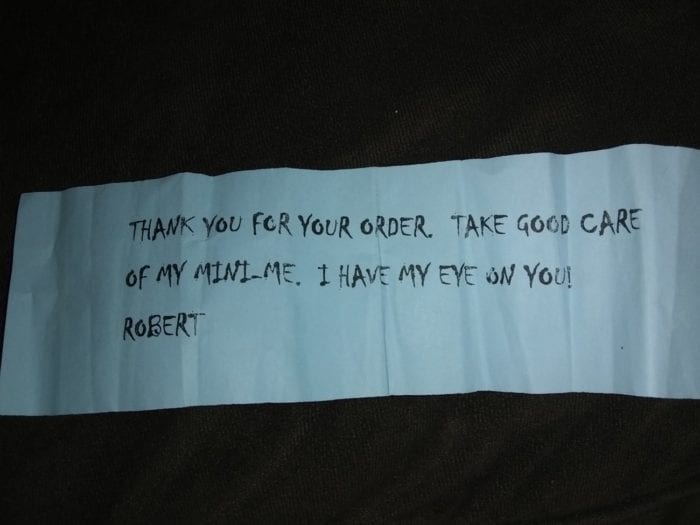 THANK YOU FOR YOUR ORDER. TAKE GOOD CARE
OF MY MINI-ME. I HAVE MY EYE ON YOU!
ROBERT